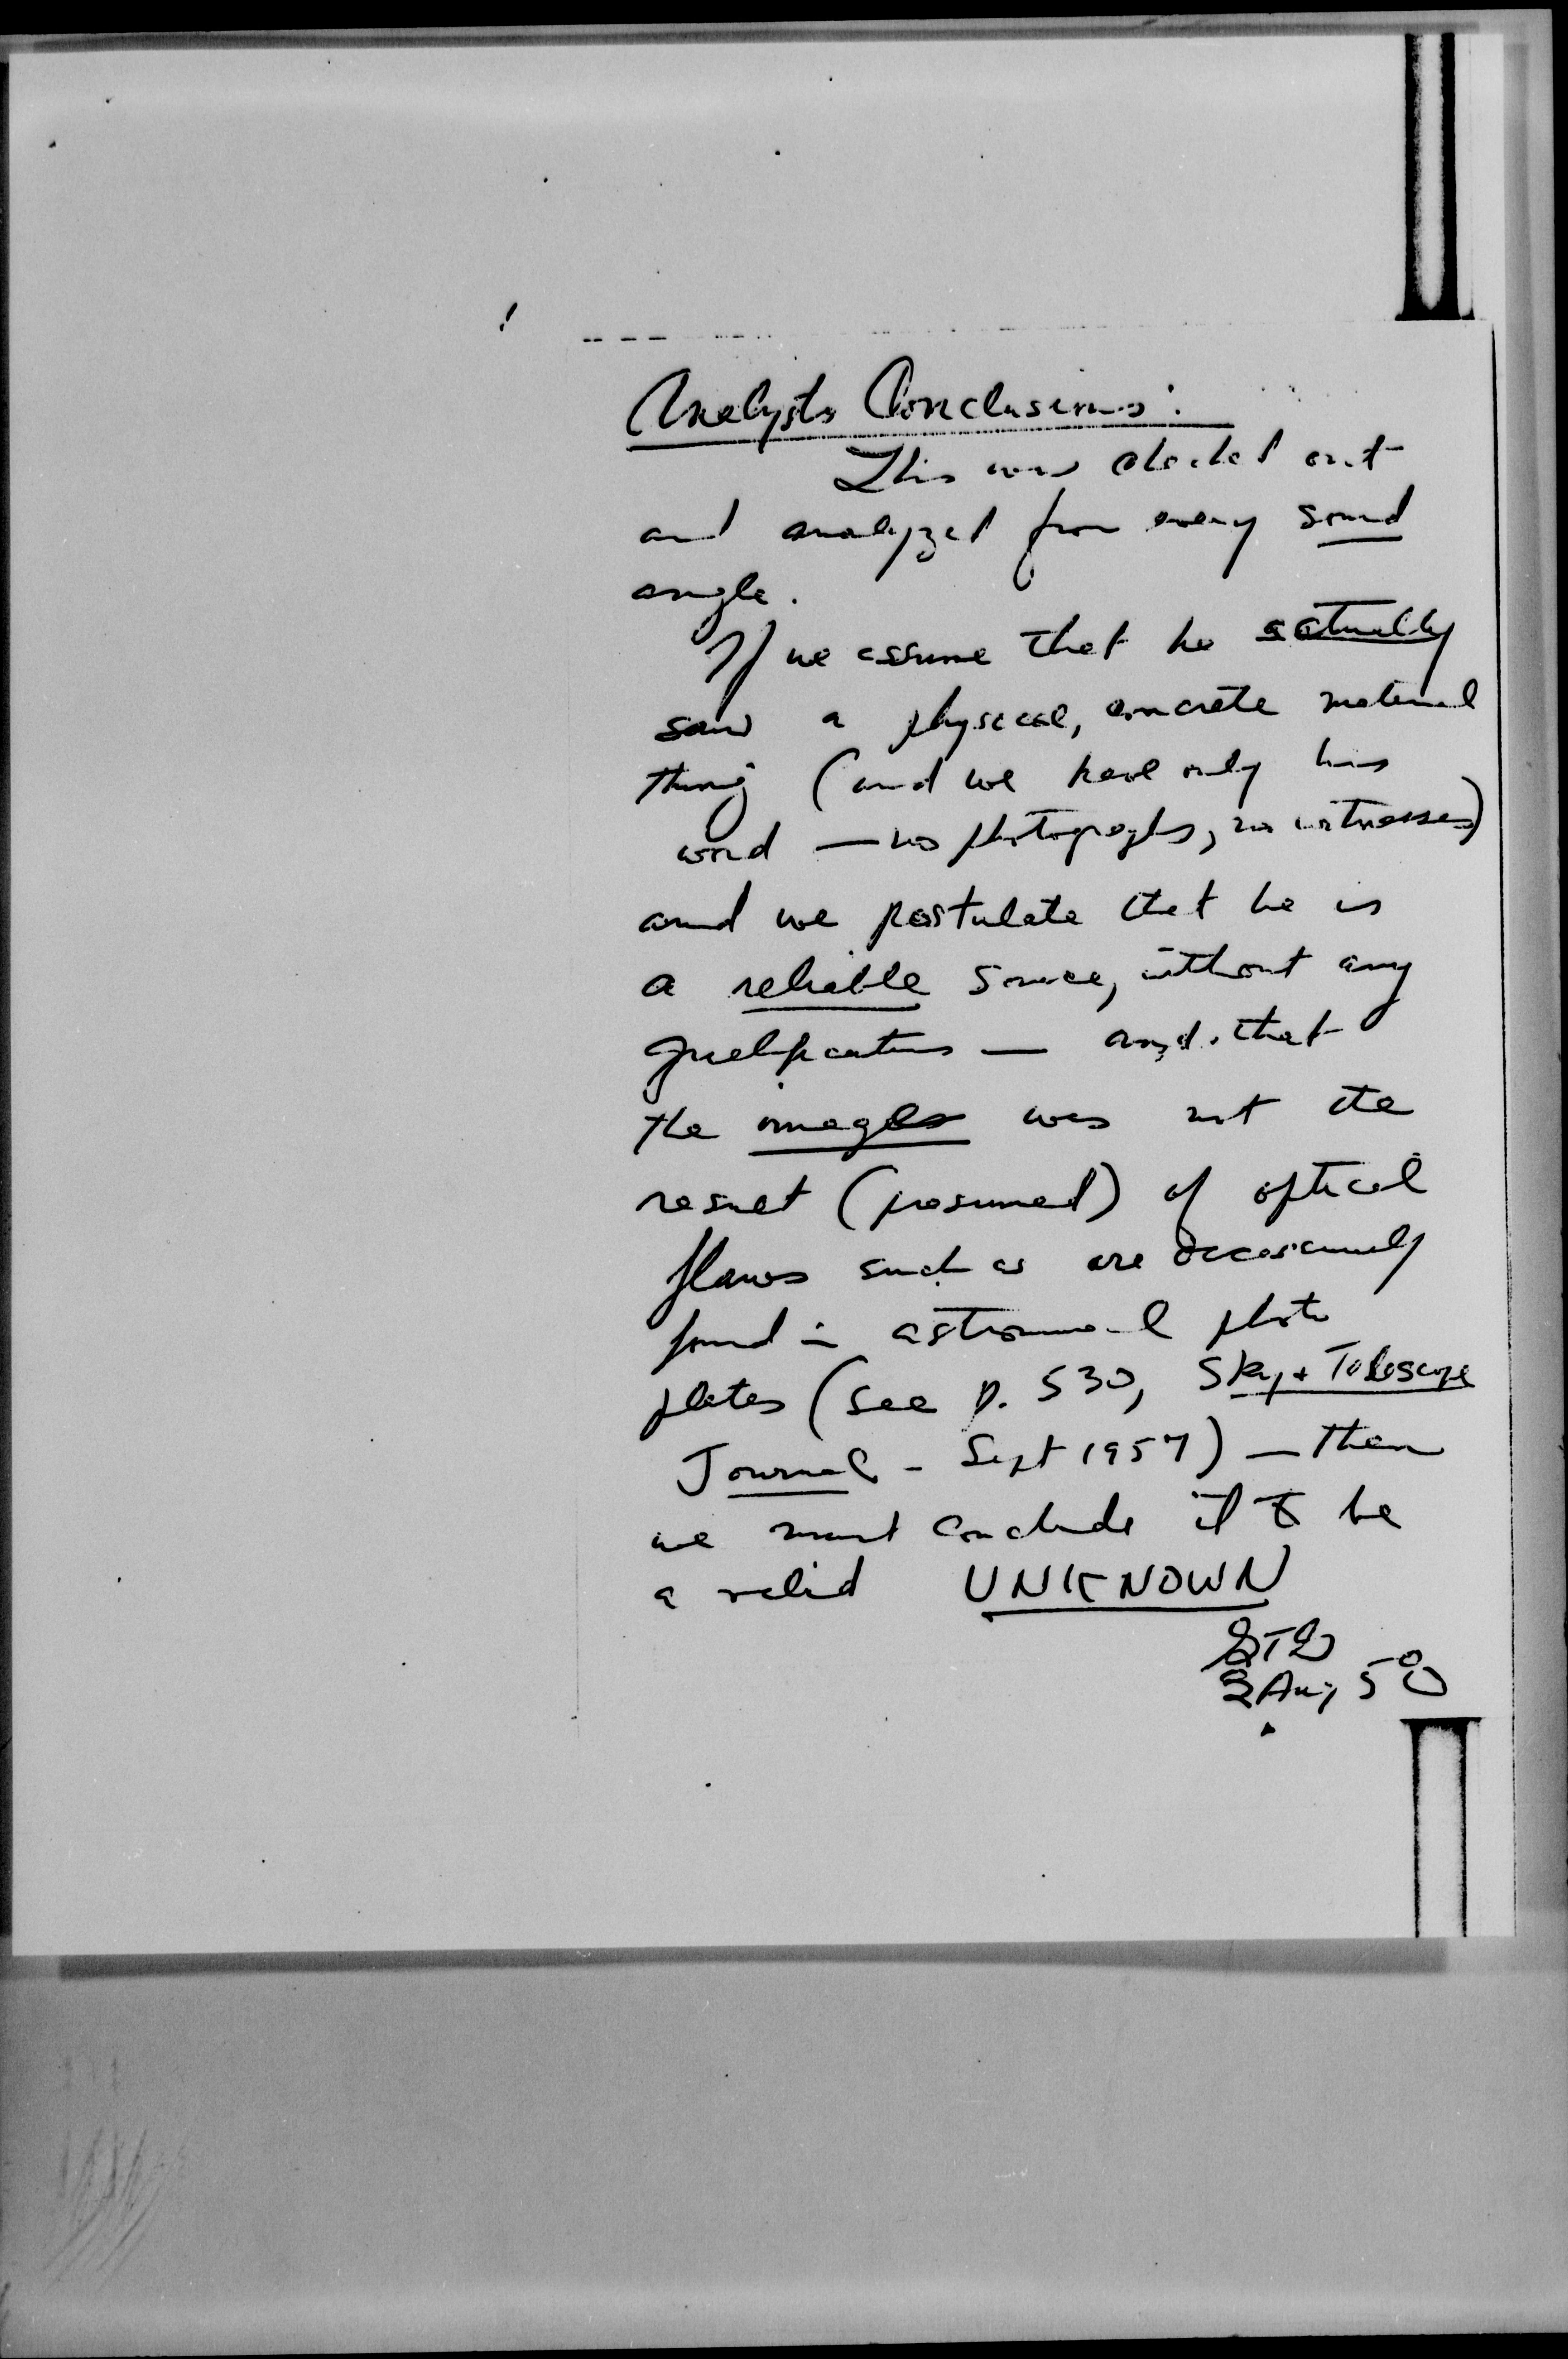 Analysts Conclusions:
This was checked out
and analyzed from every sound
angle.
If we assume that he actually
saw a physical, concrete material
thing (and we have only his
word — no photographs, no witnesses)
and we postulate that he is
a reliable source, without any
qualifications — and that
the images was not the
result (presumed) of optical
flaws such as are occasionally
found in astronomical photo
plates (see p. 530, Sky + Telescope
Journal - Sept 1957) — then
we must conclude it to be
a valid UNKNOWN
Aug 58